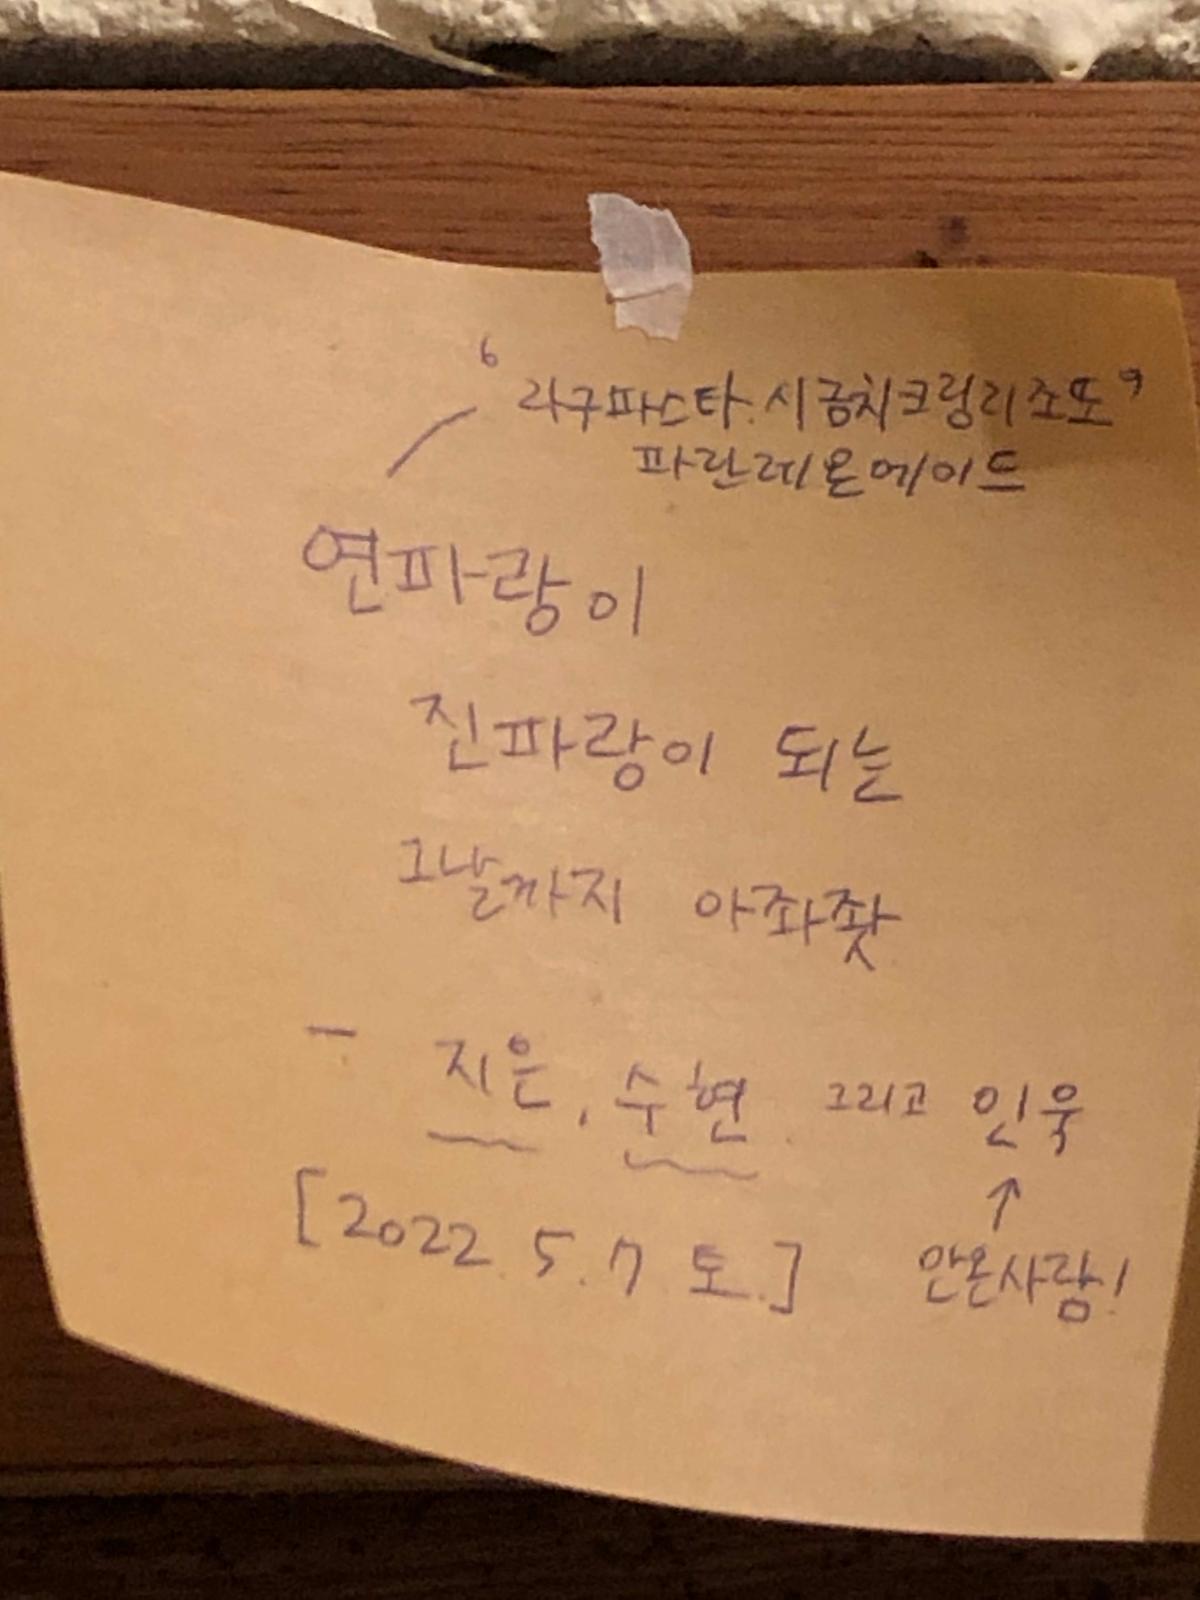 ‘라구파스타. 시금치크림리조또’
파란레몬에이드
연파랑이
진파랑이 되는
그날까지 아좌좟
- 지은, 수현. 그리고 인욱
↑
[2022. 5. 7 토.] 안온사람!